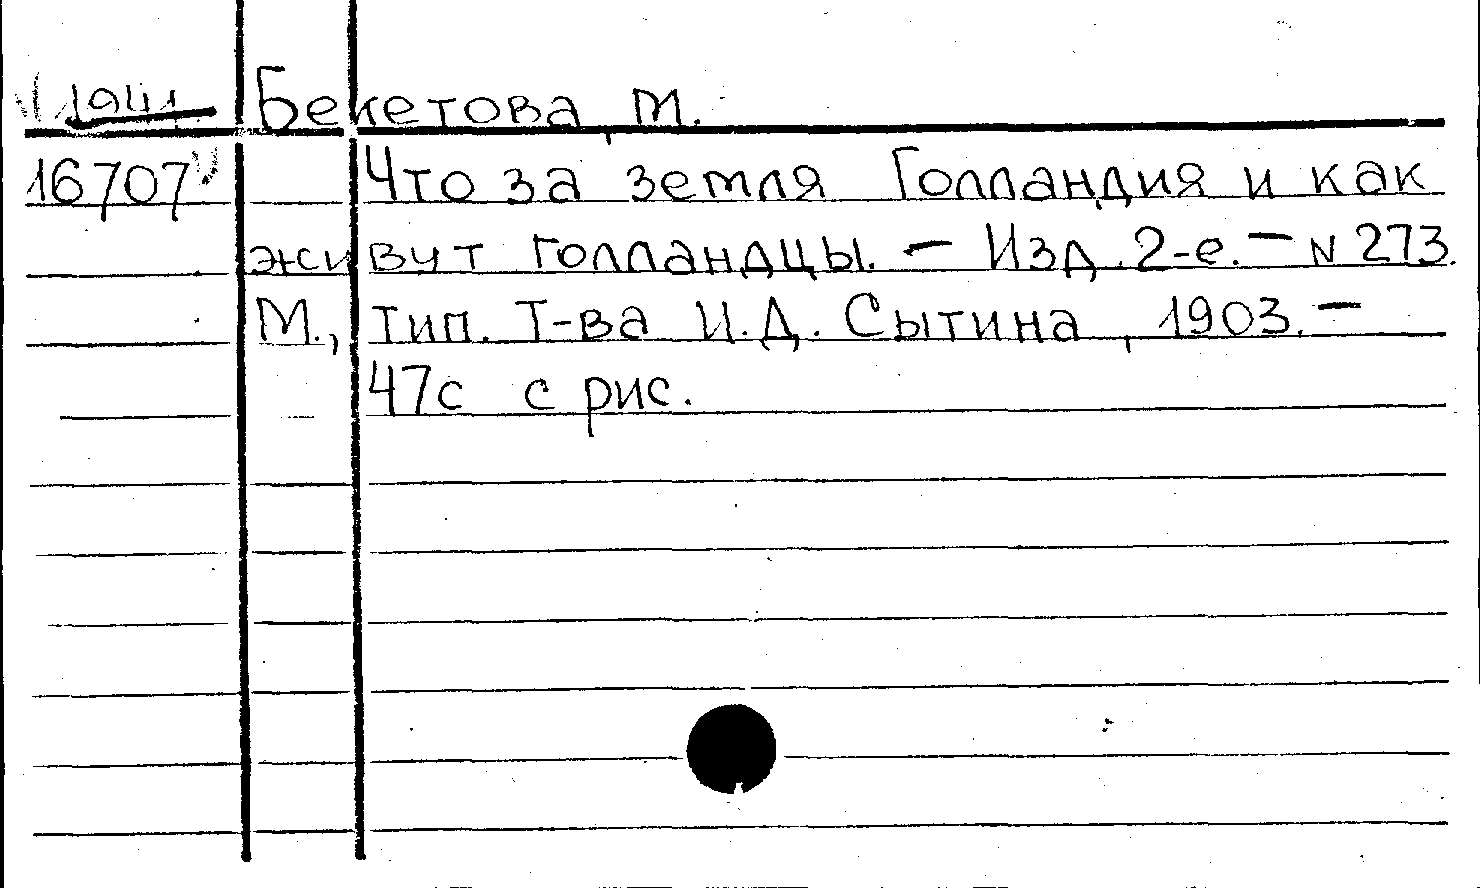 1941 Бекетова, М.
16707 Что за земля Голландия и как
живут голландцы. - Изд. 2-е. - N 273.
М., тип. Т-ва И.Д. Сытина, 1903. -
47с с рис.